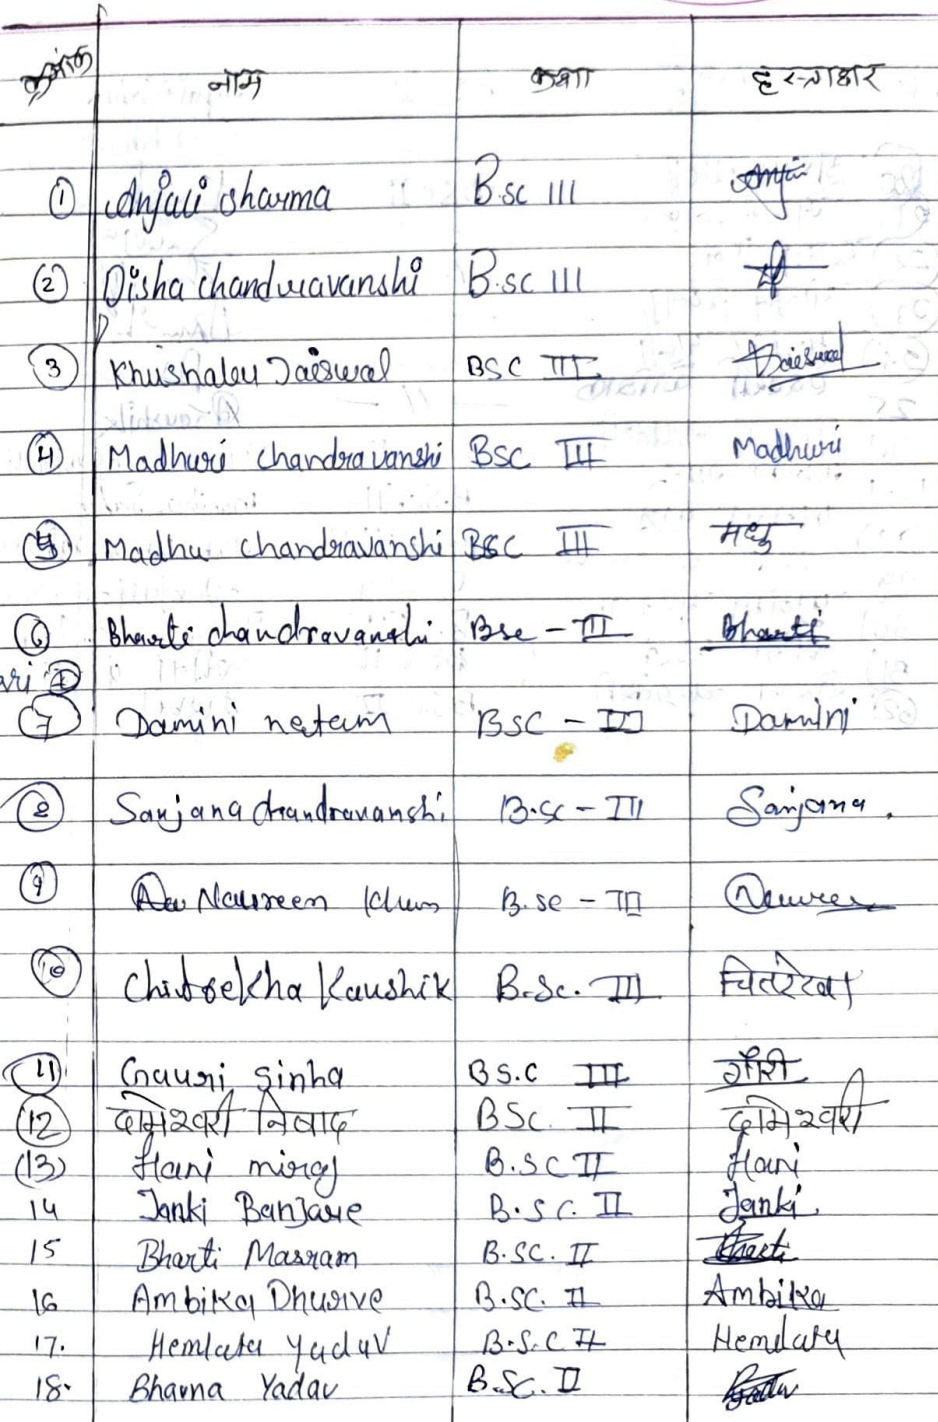 क्रमांक नाम कक्षा हस्ताक्षर
① Anjali Sharma B.sc III Anjali
② Disha chandravanshi B.sc III
③ Khushabu Jaiswal BSC III Jaiswal
④ Madhuri chandravanshi BSC III Madhuri
⑤ Madhu chandravanshi BSC III मधु
⑥ Bharti chandravanshi Bsc - III Bharti
⑦ Damini netam BSC - III Damini
⑧ Sanjana chandravanshi B.sc - III Sanjana.
⑨ Naureen B.sc - III Naureen
⑩ Chitrekha Kaushik B.Sc. III चितरेखा
⑪ Gauri Sinha BS.C III गौरी
⑫ दामेश्वरी निषाद BSc. II दामेश्वरी
(13) Hani miraj B.SC II Hani
14 Janki Banjare B.SC. II Janki.
15 Bharti Masram B.SC. II Bharti
16 Ambika Dhurve B.SC. II Ambika
17. Hemlata Yadav B.S.C II Hemlata
18. Bhavna Yadav B.SC. II